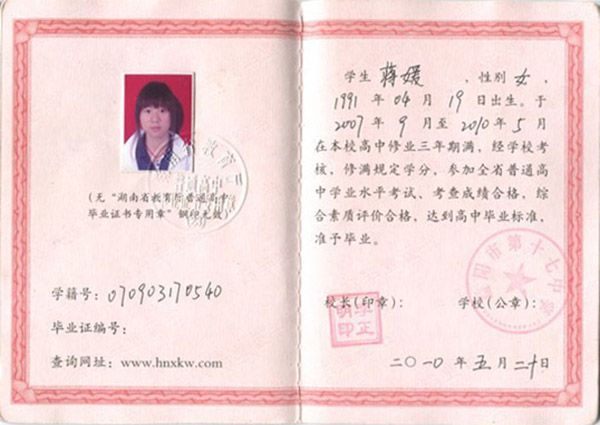 (无“湖南省教育厅普通高中
毕业证书专用章”钢印无效)
学籍号: 070903170540
毕业证编号:
查询网址: www.hnxkw.com
学生 蒋媛 , 性别 女,
1991 年 04 月 19 日出生。于
2007 年 9 月至 2010 年 5 月
在本校高中修业三年期满, 经学校考
核, 修满规定学分, 参加全省普通高
中学业水平考试、考查成绩合格, 综
合素质评价合格, 达到高中毕业标准,
准予毕业。
校长(印章): 学校(公章):
李正明印
阳市第十七中学
二〇一〇年五月二十日